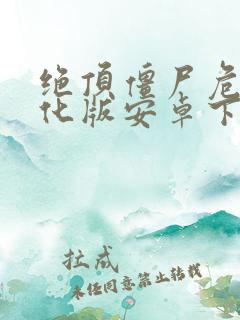 绝顶僵尸危
化版安卓下
拉成
未经同意禁止转载